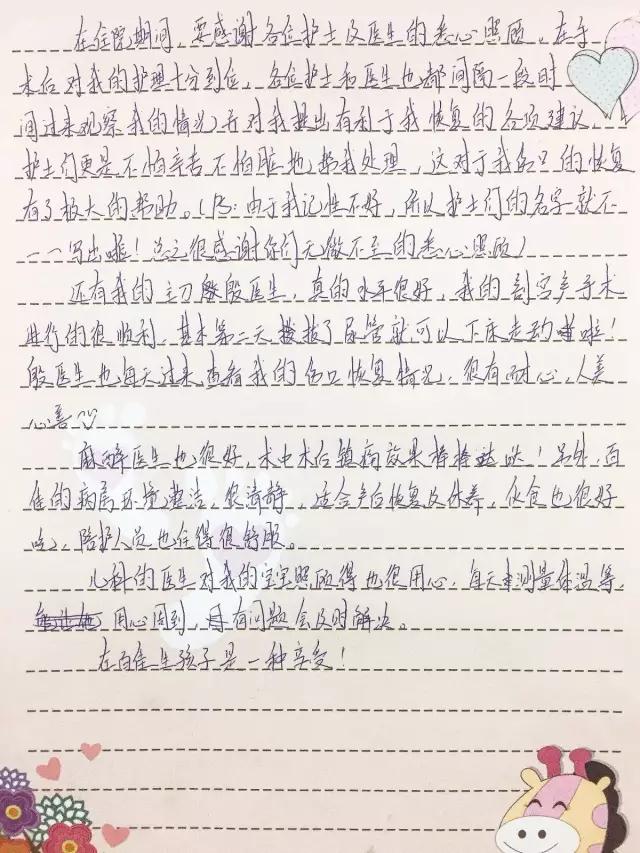 在住院期间，要感谢各位护士及医生的悉心照顾，在手
术后对我的护理十分到位，各位护士和医生也都间隔一段时
间过来观察我的情况，并对我提出有利于我恢复的各项建议，
护士们更是不怕辛苦不怕脏地帮我处理，这对于我伤口的恢复
有了极大的帮助。（PS：由于我记性不好，所以护士们的名字就不
一一写出啦！总之很感谢你们无微不至的悉心照顾）
还有我的主刀殷医生，真的水平很好，我的剖宫产手术
进行的很顺利，基本第二天拔了尿管就可以下床走动啦！
殷医生也每天过来查看我的伤口恢复情况，很有耐心，人美
心善
麻醉医生也很好，术中术后镇痛效果棒棒哒！另外，百
佳的病房环境整洁，很清静，适合产后恢复及休养，伙食也很好
吃，陪护人员也住得很舒服。
儿科的医生对我的宝宝照顾得也很用心，每天测量体温等，
用心周到，有问题会及时解决。
在百佳生孩子是一种享受！